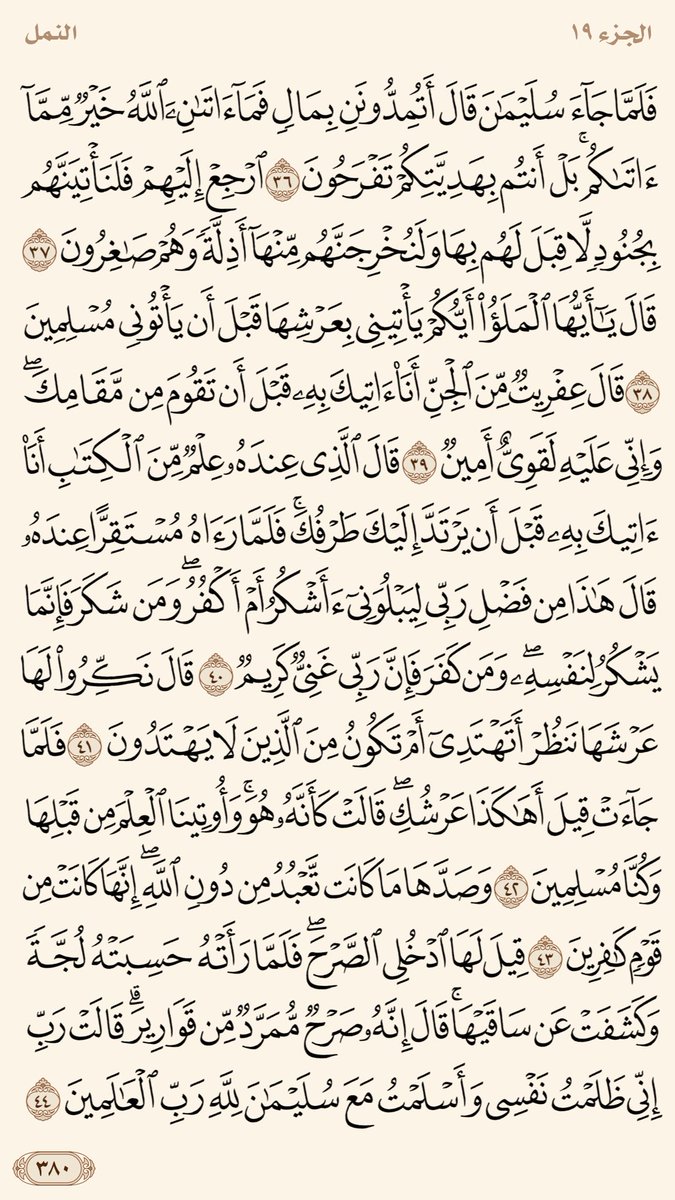 الجزء ١٩
النمل
فَلَمَّا جَآءَ سُلَيْمَٰنَ قَالَ أَتُمِدُّونَنِ بِمَالٍ فَمَآ ءَاتَىٰنِۦَ ٱللَّهُ خَيْرٌ مِّمَّآ
ءَاتَىٰكُمۚ بَلْ أَنتُم بِهَدِيَّتِكُمْ تَفْرَحُونَ ٣٦ ٱرْجِعْ إِلَيْهِمْ فَلَنَأْتِيَنَّهُم
بِجُنُودٍ لَّا قِبَلَ لَهُم بِهَا وَلَنُخْرِجَنَّهُم مِّنْهَآ أَذِلَّةً وَهُمْ صَٰغِرُونَ ٣٧
قَالَ يَٰٓأَيُّهَا ٱلْمَلَؤُا۟ أَيُّكُمْ يَأْتِينِى بِعَرْشِهَا قَبْلَ أَن يَأْتُونِى مُسْلِمِينَ
٣٨ قَالَ عِفْرِيتٌ مِّنَ ٱلْجِنِّ أَنَا۠ ءَاتِيكَ بِهِۦ قَبْلَ أَن تَقُومَ مِن مَّقَامِكَۖ
وَإِنِّى عَلَيْهِ لَقَوِىٌّ أَمِينٌ ٣٩ قَالَ ٱلَّذِى عِندَهُۥ عِلْمٌ مِّنَ ٱلْكِتَٰبِ أَنَا۠
ءَاتِيكَ بِهِۦ قَبْلَ أَن يَرْتَدَّ إِلَيْكَ طَرْفُكَۚ فَلَمَّا رَءَاهُ مُسْتَقِرًّا عِندَهُۥ
قَالَ هَٰذَا مِن فَضْلِ رَبِّى لِيَبْلُوَنِىٓ ءَأَشْكُرُ أَمْ أَكْفُرُۖ وَمَن شَكَرَ فَإِنَّمَا
يَشْكُرُ لِنَفْسِهِۦۖ وَمَن كَفَرَ فَإِنَّ رَبِّى غَنِىٌّ كَرِيمٌ ٤٠ قَالَ نَكِّرُوا۟ لَهَا
عَرْشَهَا نَنظُرْ أَتَهْتَدِىٓ أَمْ تَكُونُ مِنَ ٱلَّذِينَ لَا يَهْتَدُونَ ٤١ فَلَمَّا
جَآءَتْ قِيلَ أَهَٰكَذَا عَرْشُكِۖ قَالَتْ كَأَنَّهُۥ هُوَۚ وَأُوتِينَا ٱلْعِلْمَ مِن قَبْلِهَا
وَكُنَّا مُسْلِمِينَ ٤٢ وَصَدَّهَا مَا كَانَت تَّعْبُدُ مِن دُونِ ٱللَّهِۖ إِنَّهَا كَانَتْ مِن
قَوْمٍ كَٰفِرِينَ ٤٣ قِيلَ لَهَا ٱدْخُلِى ٱلصَّرْحَۖ فَلَمَّا رَأَتْهُ حَسِبَتْهُ لُجَّةً
وَكَشَفَتْ عَن سَاقَيْهَاۚ قَالَ إِنَّهُۥ صَرْحٌ مُّمَرَّدٌ مِّن قَوَارِيرَۗ قَالَتْ رَبِّ
إِنِّى ظَلَمْتُ نَفْسِى وَأَسْلَمْتُ مَعَ سُلَيْمَٰنَ لِلَّهِ رَبِّ ٱلْعَٰلَمِينَ ٤٤
٣٨٠